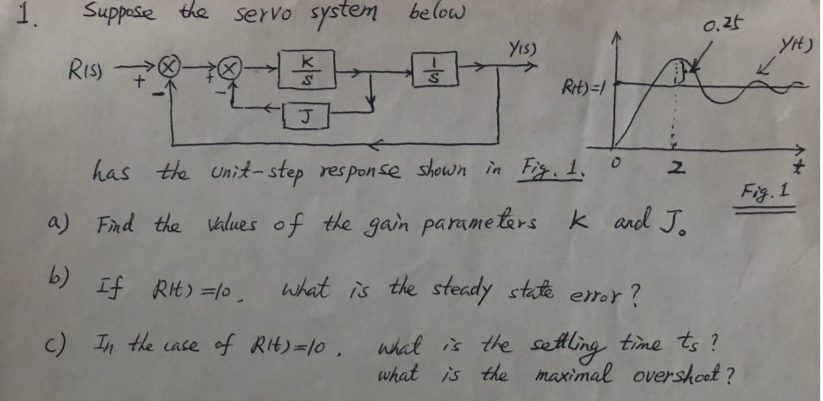 1. Suppose the servo system below
R(s) + - + - K/S 1/S Y(s)
J
0.25
Y(t)
R(t)=1
0 2 t
has the unit-step response shown in Fig. 1.
Fig. 1
a) Find the values of the gain parameters K and J.
b) If R(t)=10, what is the steady state error?
c) In the case of R(t)=10, what is the settling time ts?
what is the maximal overshoot?